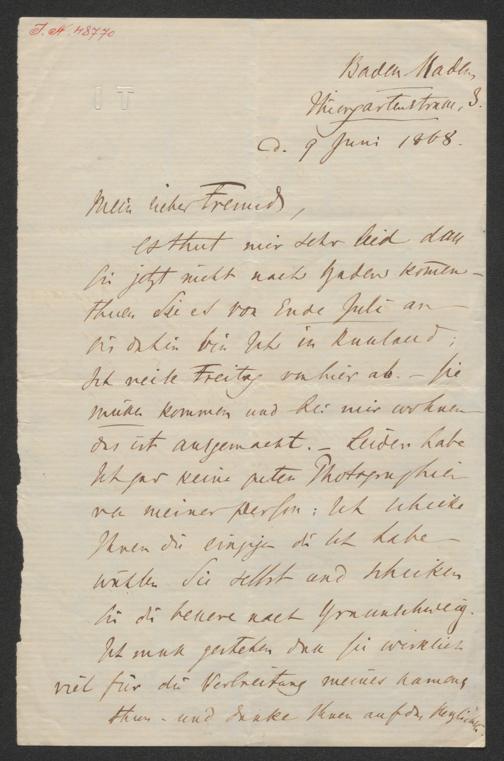 J. N. 48770
I T
Baden-Baden,
Thiergartenstrasse, 3.
d. 9 Juni 1868.
Mein lieber Freund,
es thut mir sehr leid dass
Sie jetzt nicht nach Baden kommen –
thuen Sie es von Ende Juli an –
bis dahin bin Ich in Russland;
Ich reise Freitag von hier ab. – Sie
müssen kommen und bei mir wohnen
das ist ausgemacht. – Leider habe
Ich gar keine guten Photographien
von meiner Person: Ich schicke
Ihnen die einzigen die Ich habe –
wählen Sie selbst und schicken
Sie die bessere nach Braunschweig.
Ich muss gestehen dass Sie wirklich
viel für die Verbreitung meines Namens
thun – und danke Ihnen auf das Herzlichste.